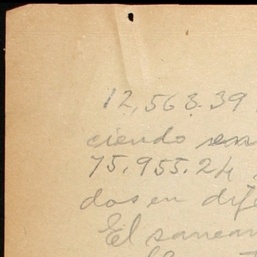 12,563.39
ciendo
75,955.24
dos en dife
El sanea